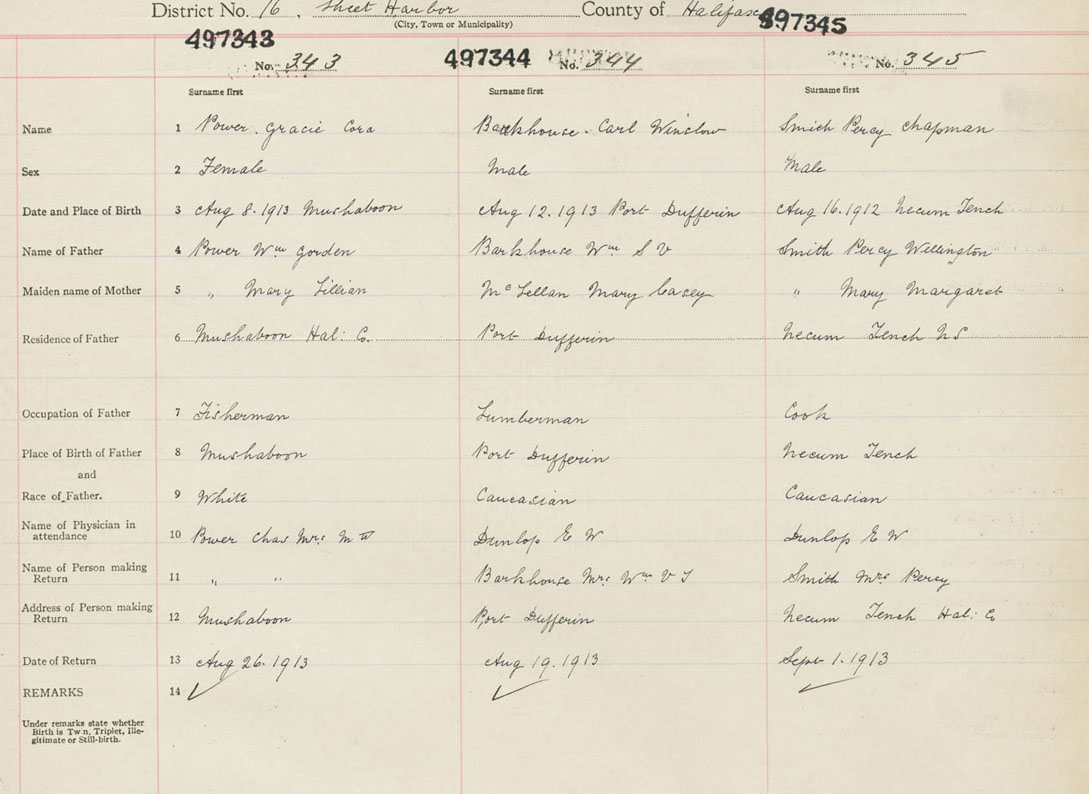 District No. 16, Sheet Harbor County of Halifax
(City, Town or Municipality)
497343 497344 497345
No. 343 No. 344 No. 345
Surname first Surname first Surname first
Name 1 Power. Gracie Cora Barkhouse. Carl Winslow Smith Percy Chapman
Sex 2 Female Male Male
Date and Place of Birth 3 Aug 8. 1913 Mushaboon Aug 12. 1913 Port Dufferin Aug 16. 1912 Necum Tench
Name of Father 4 Power Wm Gorden Barkhouse Wm S V Smith Percy Wellington
Maiden name of Mother 5 " Mary Lillian McLellan Mary Casey " Mary Margaret
Residence of Father 6 Mushaboon Hal: Co. Port Dufferin Necum Tench NS
Occupation of Father 7 Fisherman Lumberman Cook
Place of Birth of Father 8 Mushaboon Port Dufferin Necum Tench
and
Race of Father. 9 White Caucasian Caucasian
Name of Physician in
attendance 10 Power Chas Mrs Dunlop E W Dunlop E W
Name of Person making
Return 11 " " Barkhouse Mrs Wm V S Smith Mrs Percy
Address of Person making
Return 12 Mushaboon Port Dufferin Necum Tench Hal: Co
Date of Return 13 Aug 26. 1913 Aug 19. 1913 Sept 1. 1913
REMARKS 14 ✓ ✓ ✓
Under remarks state whether
Birth is Twin, Triplet, Ille-
gitimate or Still-birth.